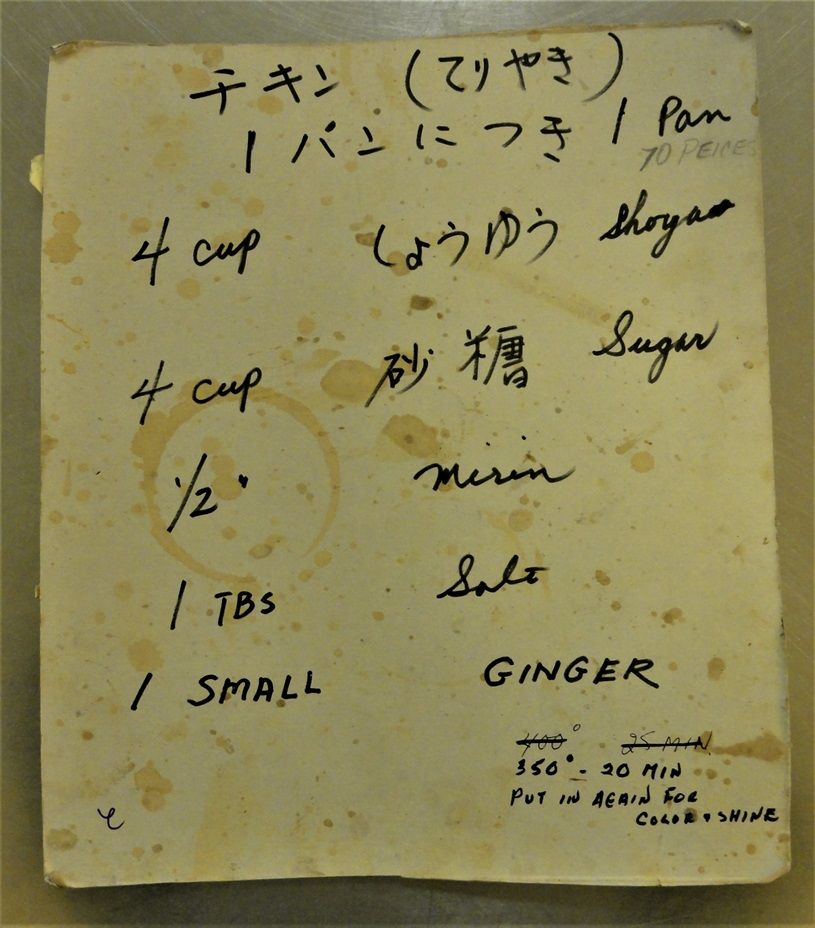 チキン (てりやき)
1 パンにつき 1 Pan
70 PEICES
4 cup しょうゆう Shoyu
4 cup 砂糖 Sugar
1/2 " mirin
1 TBS Salt
1 SMALL GINGER
400° 25 MIN
350° - 20 MIN
PUT IN AGAIN FOR
COLOR & SHINE